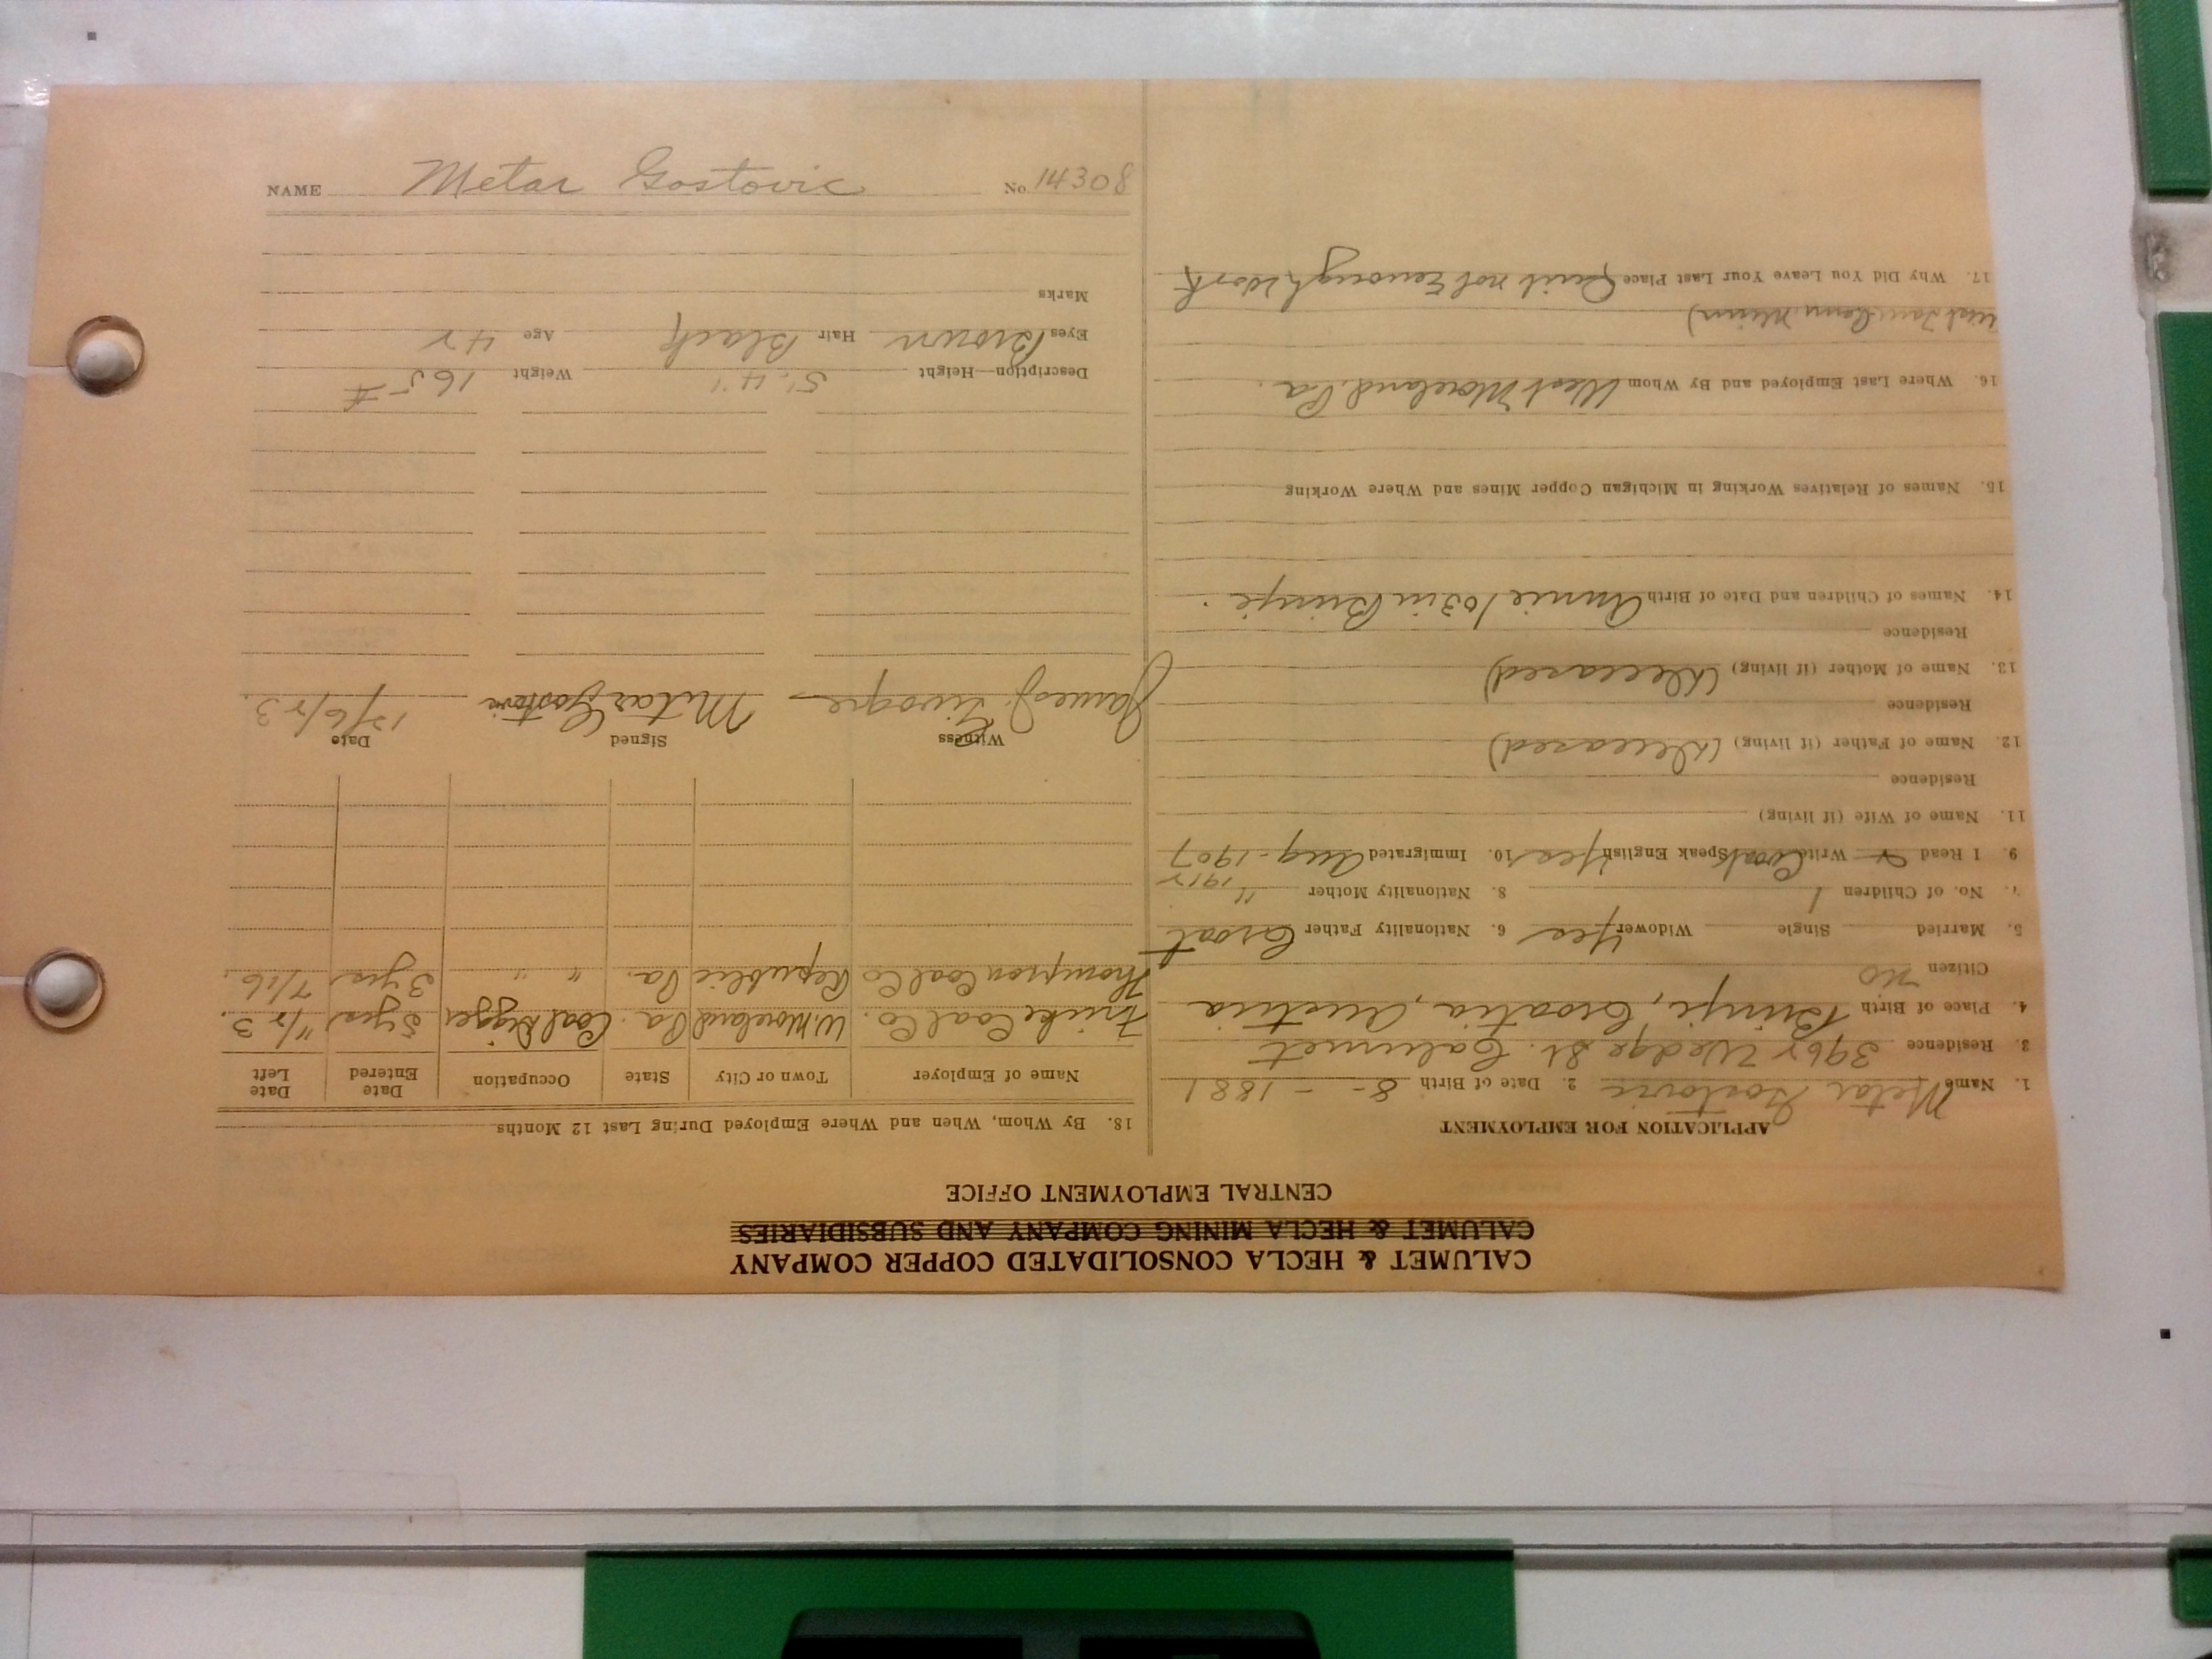 CALUMET & HECLA CONSOLIDATED COPPER COMPANY
CALUMET & HECLA MINING COMPANY AND SUBSIDIARIES
CENTRAL EMPLOYMENT OFFICE
APPLICATION FOR EMPLOYMENT
1. Name Metar Gostovic 2. Date of Birth 8 - - 1881
3. Residence 3962 Wedge St. Calumet
4. Place of Birth Brinje, Croatia, Austria
Citizen No
5. Married Single Widower Yes 6. Nationality Father Croat
7. No. of Children 1 8. Nationality Mother "
1912
9. I Read Write Croat Speak English Yes 10. Immigrated Aug - 1907
11. Name of Wife (if living)
Residence
12. Name of Father (if living) (Deceased)
Residence
13. Name of Mother (if living) (Deceased)
Residence
14. Names of Children and Date of Birth Annie 10 in Brinje.
15. Names of Relatives Working in Michigan Copper Mines and Where Working
16. Where Last Employed and By Whom West Moreland Pa.
17. Why Did You Leave Your Last Place Quit not Enough Work
18. By Whom, When and Where Employed During Last 12 Months
Name of Employer Town or City State Occupation Date Entered Date Left
Fricke Coal Co. W. Moreland Pa. Coal Digger 5 yrs 11/23.
Thompson Coal Co Republic Pa. " " 3 yrs 7/16.
Witness Signed Date
James J. Mitar Gostovic 12/6/23.
Description—Height 5' 4" Weight 165 #
Eyes Brown Hair Black Age 42
Marks
NAME Metar Gostovic No. 14308